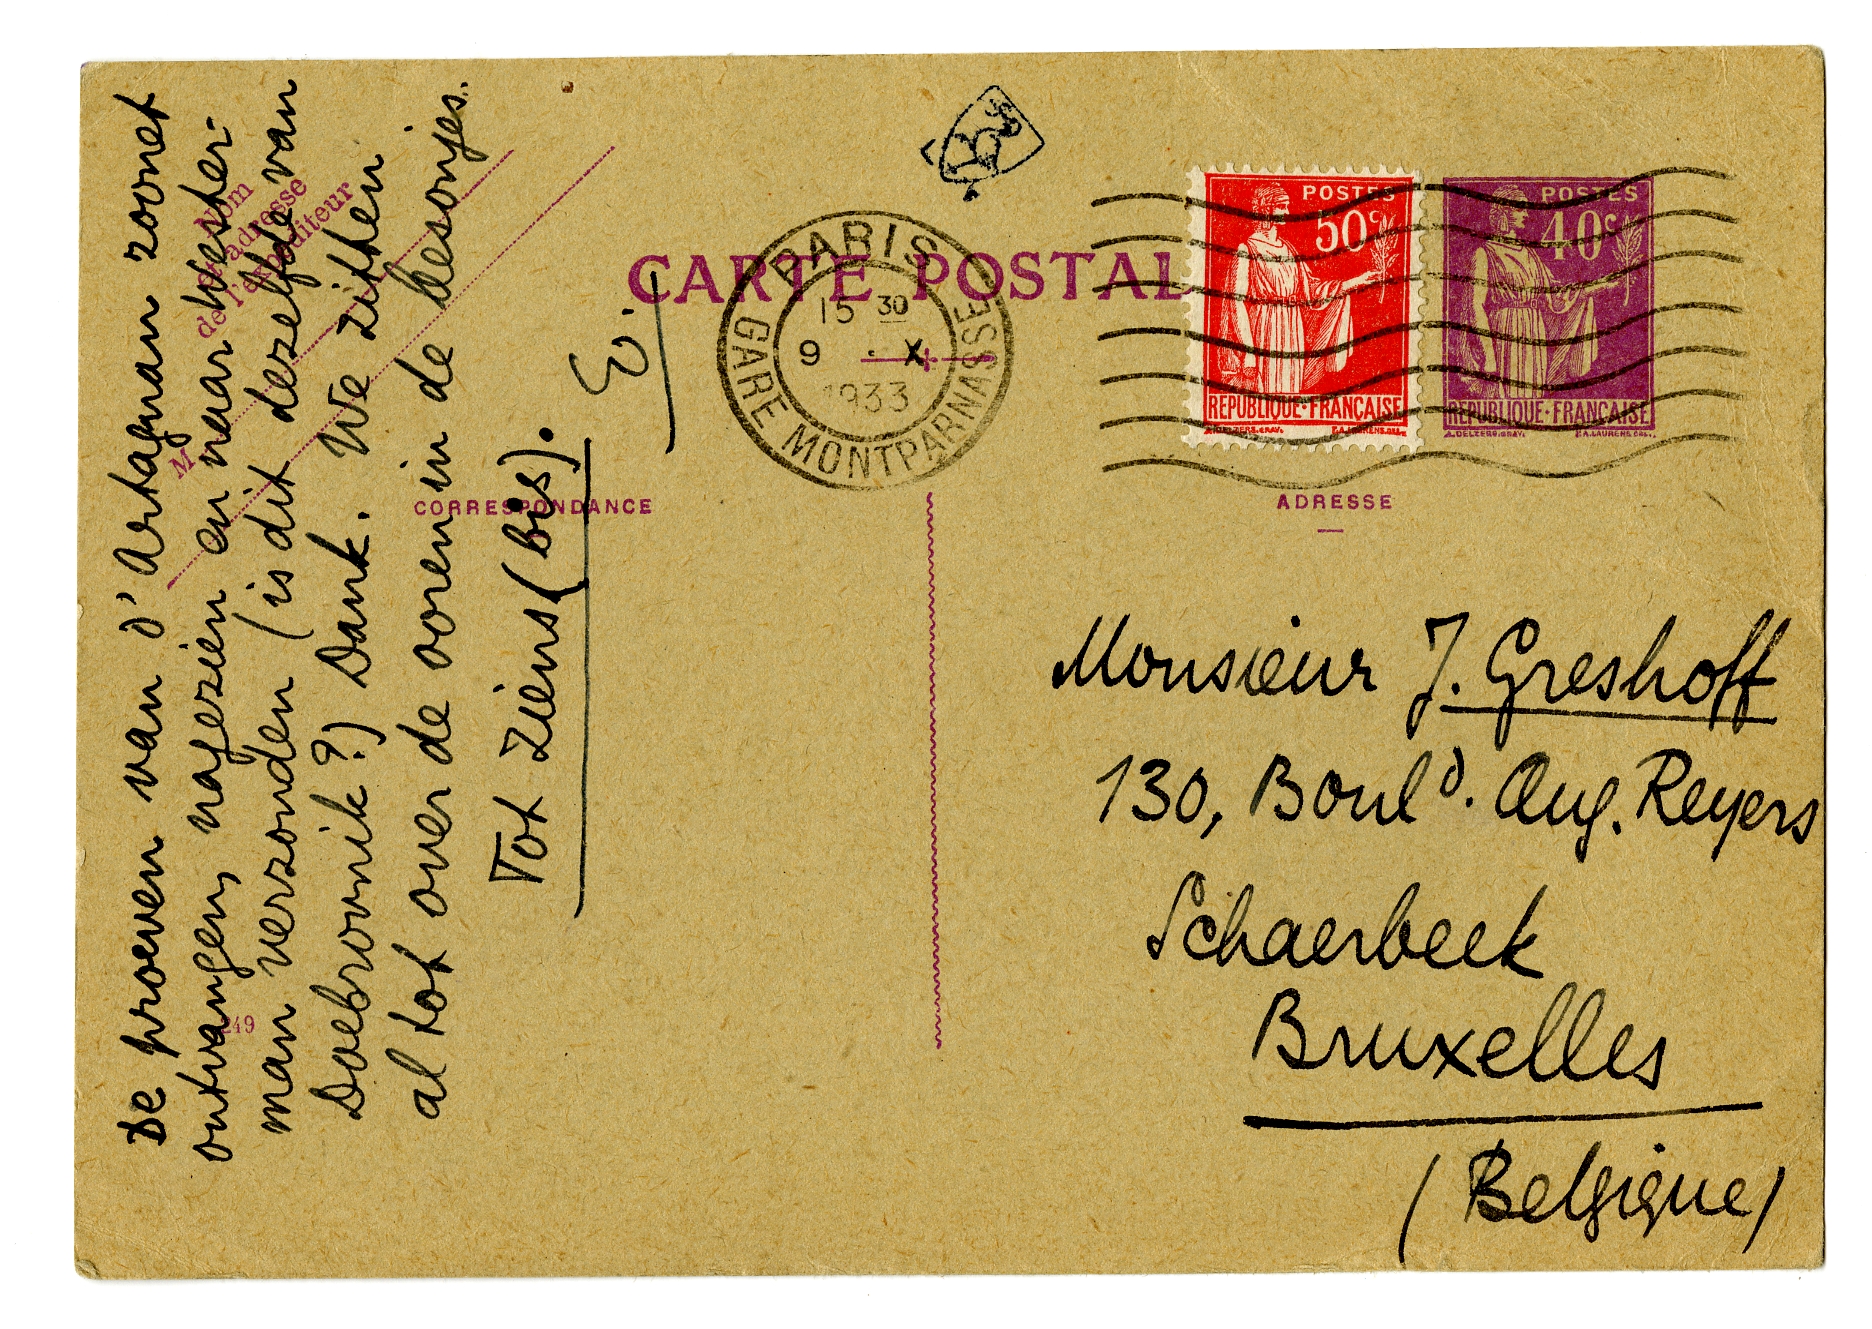 De proeven van d'Artagnan zoonet
ontvangen, nagezien en naar Wester-
man verzonden (is dit dezelfde van
Doebrovnik?) Dank. We zitten
al tot over de ooren in de besonjes.
Tot ziens (bis).
E.
Nom
et adresse
de l'expéditeur
M
CARTE POSTALE
PARIS
GARE MONTPARNASSE
15 30
9 . X
1933
POSTES
50c
REPUBLIQUE·FRANÇAISE
J.DELZERS.GRAV. P.A.LAURENS.DEL.
POSTES
40c
REPUBLIQUE·FRANÇAISE
J.DELZERS.GRAV. P.A.LAURENS.DEL.
CORRESPONDANCE
ADRESSE
Monsieur J. Greshoff
130, Bould. Aug. Reyers
Schaerbeek
Bruxelles
(Belgique)
249